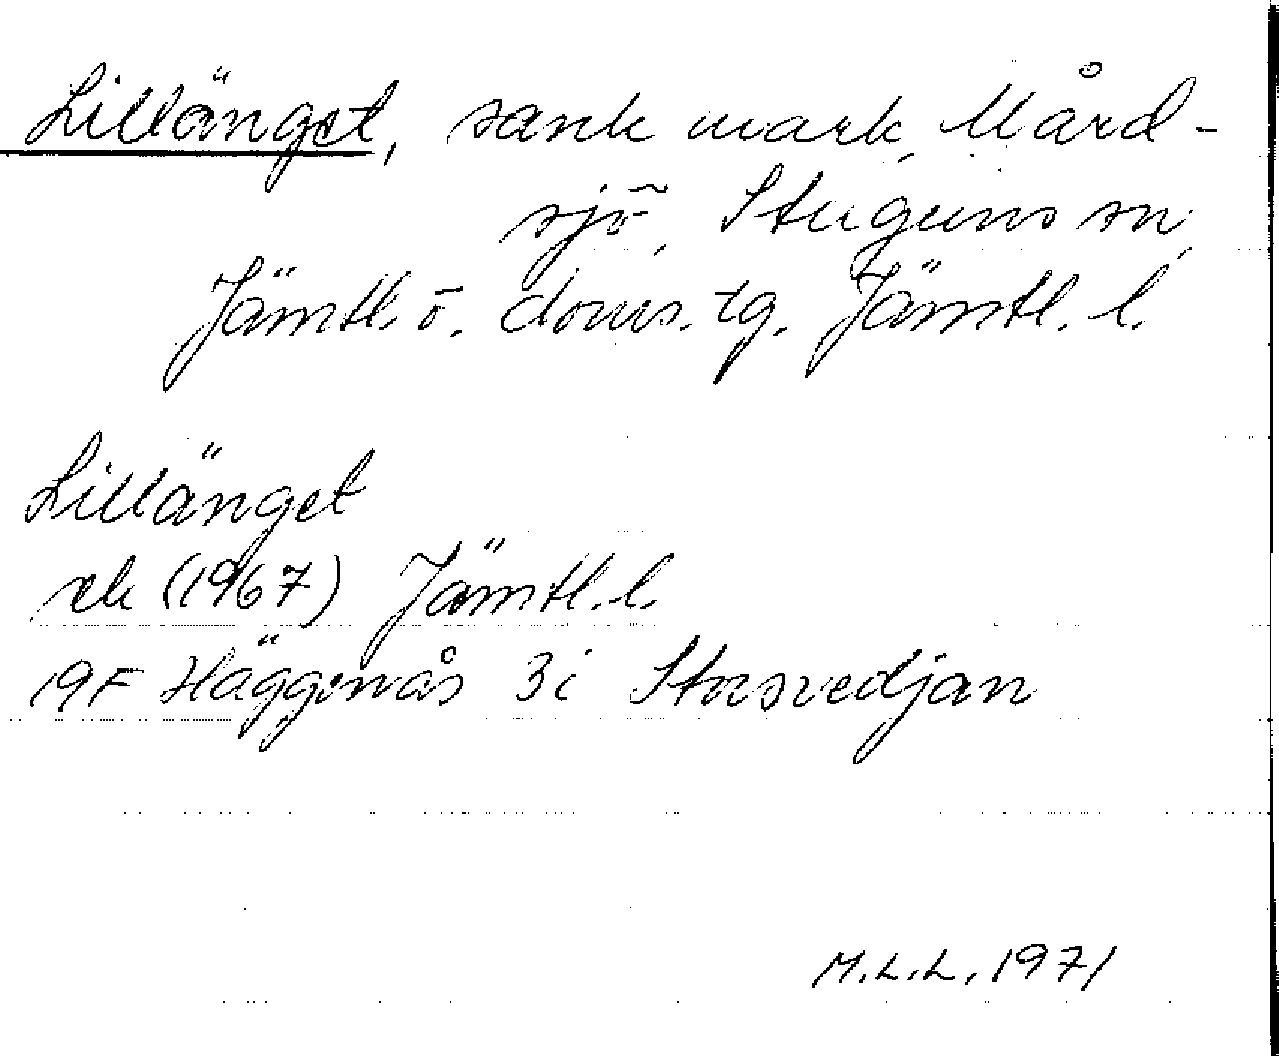 Lillänget, sank mark, Mård-
sjö, Stuguns sn,
Jämtl. ö. doms. tg. Jämtl. l.
Lillänget
ek (1967) Jämtl. l.
19F Häggenås 3i Storsvedjan
M.L.L. 1971